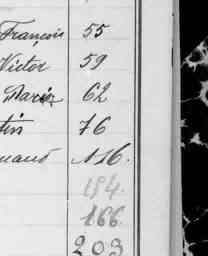 François 55
Victor 59
Marie 62
tin 76
naud 116.
184.
166
203